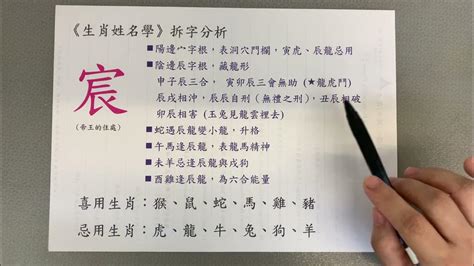 《生肖姓名學》拆字分析
宸
(帝王的住處)
■陽邊宀字根，表洞穴門欄，寅虎、辰龍忌用
■陰邊辰字根，藏龍形
申子辰三合，寅卯辰三會無助 (★龍虎鬥)
辰戌相沖，辰辰自刑 (無禮之刑)，丑辰相破
卯辰相害 (玉兔見龍雲裡去)
■蛇遇辰龍變小龍，升格
■午馬逢辰龍，表龍馬精神
■未羊忌逢辰龍與戌狗
■酉雞逢辰龍，為六合能量
喜用生肖：猴、鼠、蛇、馬、雞、豬
忌用生肖：虎、龍、牛、兔、狗、羊